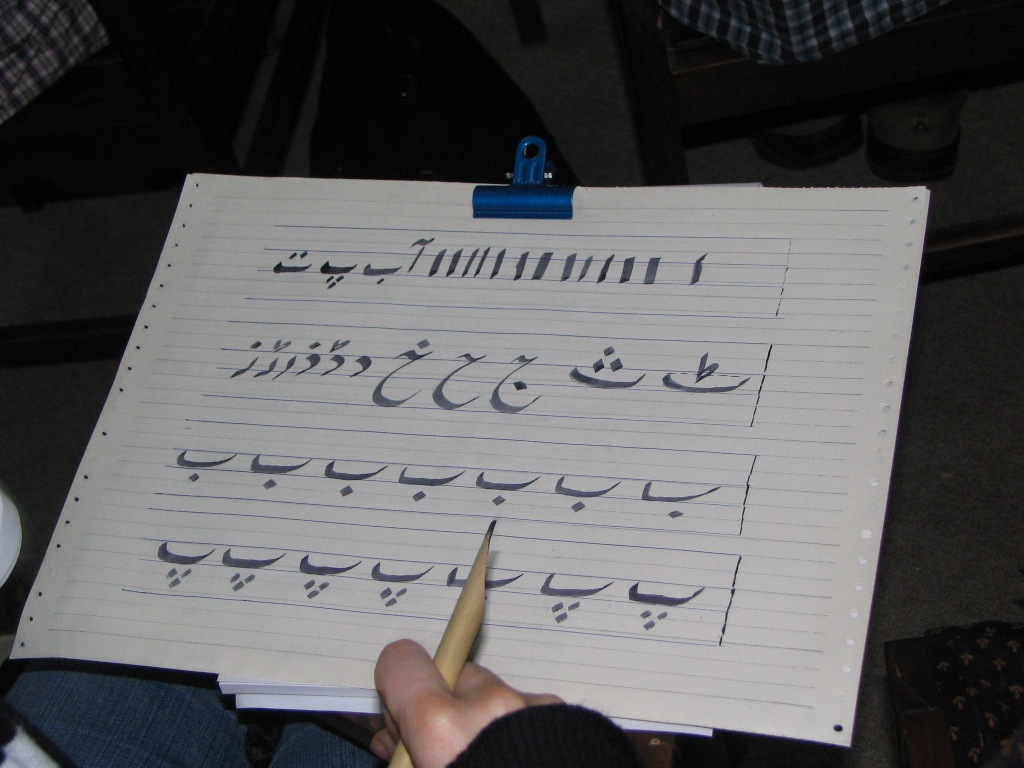 ا ا ا ا ا ا ا ا ا ا ا ا ا آ ب پ ت
ٹ ث ج ح خ د ڈ ذ ر ڑ ز
ب ب ب ب ب ب ب
پ پ پ پ پ پ پ